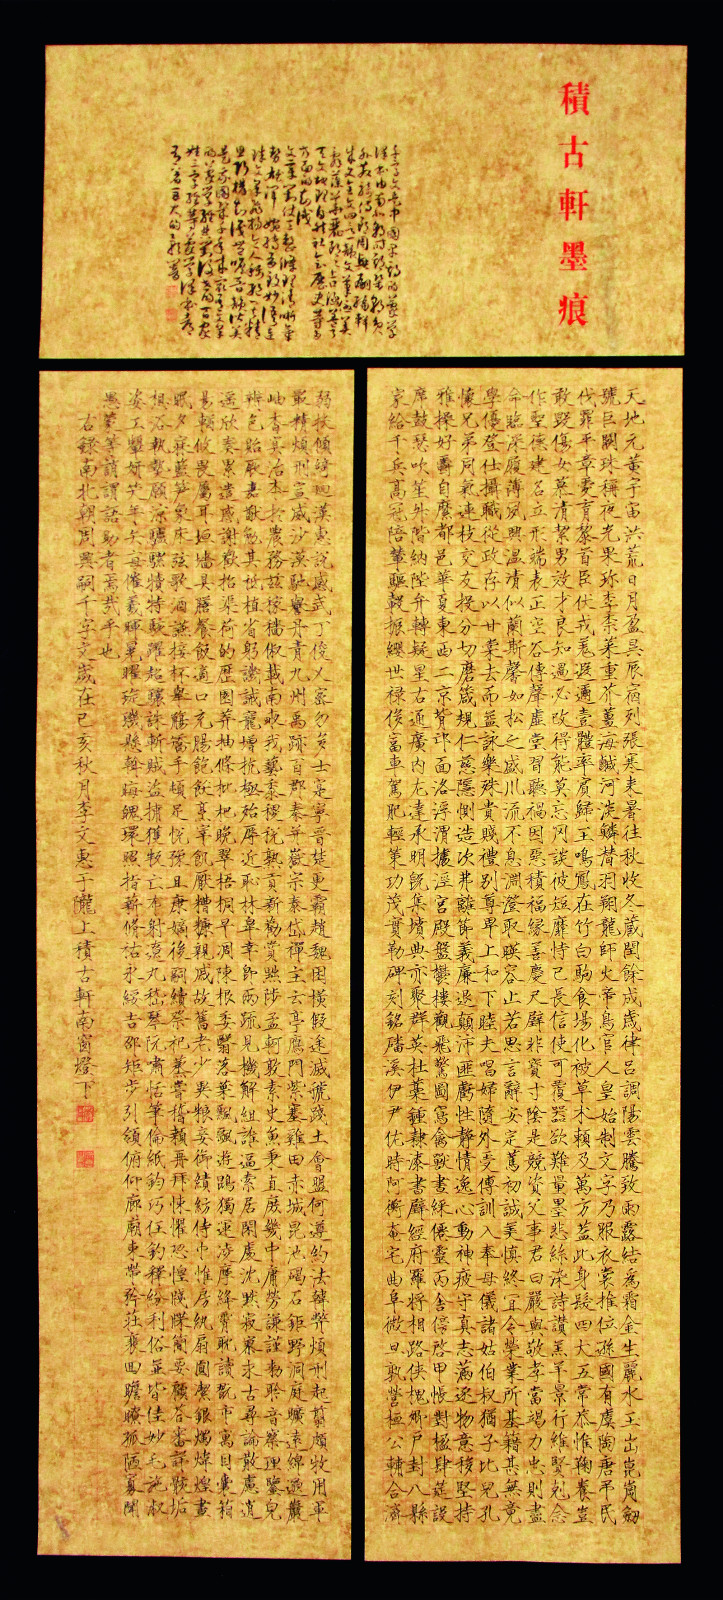 積古軒墨痕
千字文是中國早期的蒙學
天地元黃宇宙洪荒日月盈昃辰宿列張寒來暑往秋收冬藏閏餘成歲律呂調陽雲騰致雨露結為霜金生麗水玉出崑岡劒
號巨闕珠稱夜光果珍李柰菜重芥薑海鹹河淡鱗潛羽翔龍師火帝鳥官人皇始制文字乃服衣裳推位遜國有虞陶唐弔民
伐罪平章愛育黎首臣伏戎羌遐邇壹體率賓歸王鳴鳳在竹白駒食場化被草木賴及萬方蓋此身髮四大五常恭惟鞠養豈
敢毀傷女慕清絜男效才良知過必改得能莫忘罔談彼短靡恃己長信使可覆器欲難量墨悲絲染詩讚羔羊景行維賢剋念
作聖德建名立形端表正空谷傳聲虛堂習聽禍因惡積福緣善慶尺璧非寶寸陰是競資父事君曰嚴與敬孝當竭力忠則盡
命臨深履薄夙興溫清似蘭斯馨如松之盛川流不息淵澄取暎容止若思言辭安定篤初誠美慎終宜令榮業所基籍甚無竟
學優登仕攝職從政存以甘棠去而益詠樂殊貴賤禮別尊卑上和下睦夫唱婦隨外受傅訓入奉母儀諸姑伯叔猶子比兒孔
懷兄弟同氣連枝交友投分切磨箴規仁慈隱惻造次弗離節義廉退顛沛匪虧性靜情逸心動神疲守真志滿逐物意移堅持
雅操好爵自縻都邑華夏東西二京背邙面洛浮渭據涇宮殿盤鬱樓觀飛驚圖寫禽獸畫綵僊靈丙舍傍啓甲帳對楹肆筵設
席鼓瑟吹笙升階納陛弁轉疑星右通廣內左達承明既集墳典亦聚群英杜藁鍾隸漆書壁經府羅將相路俠槐卿戶封八縣
家給千兵高冠陪輦驅轂振纓世祿侈富車駕肥輕策功茂實勒碑刻銘磻溪伊尹佐時阿衡奄宅曲阜微旦孰營桓公輔合濟
弱扶傾綺迴漢惠說感武丁俊乂密勿多士寔寧晉楚更霸趙魏困橫假途滅虢踐土會盟何遵約法韓弊煩刑起翦頗牧用軍
最精煩刑宣威沙漠馳譽丹青九州禹跡百郡秦并嶽宗泰岱禪主云亭鴈門紫塞雞田赤城昆池碣石鉅野洞庭曠遠綿邈巖
岫杳冥治本於農務茲稼穡俶載南畝我藝黍稷稅熟貢新勸賞黜陟孟軻敦素史魚秉直庶幾中庸勞謙謹勑聆音察理鑒皃
辨色貽厥嘉猷勉其祗植省躬譏誡寵增抗極殆辱近恥林皋幸即兩疏見機解組誰逼索居閑處沈默寂寥求古尋論散慮逍
遙欣奏累遣感謝歡招渠荷的歷園莽抽條枇杷晚翠梧桐早凋陳根委翳落葉飄颻游鵾獨運凌摩絳霄耽讀翫市寓目囊箱
易輶攸畏屬耳垣牆具膳餐飯適口充腸飽飫烹宰飢厭糟糠親戚故舊老少異糧妾御績紡侍巾帷房紈扇圓潔銀燭煒煌晝
眠夕寐藍笋象床弦歌酒讌接杯舉觴矯手頓足悅豫且康嫡後嗣續祭祀蒸嘗稽顙再拜悚懼恐惶牋牒簡要顧答審詳骸垢
想浴執熱願涼驢騾犢特駭躍超驤誅斬賊盜捕獲叛亡布射遼丸嵇琴阮嘯恬筆倫紙鈞巧任釣釋紛利俗並皆佳妙毛施淑
姿工顰妍笑年矢每催羲暉朗曜璇璣懸斡晦魄環照指薪修祜永綏吉邵矩步引領俯仰廊廟束帶矜莊裵回瞻眺孤陋寡聞
愚蒙等誚謂語助者焉哉乎也
右錄南北朝周興嗣千字文歲在己亥秋月李文惠于隴上積古軒南窗燈下